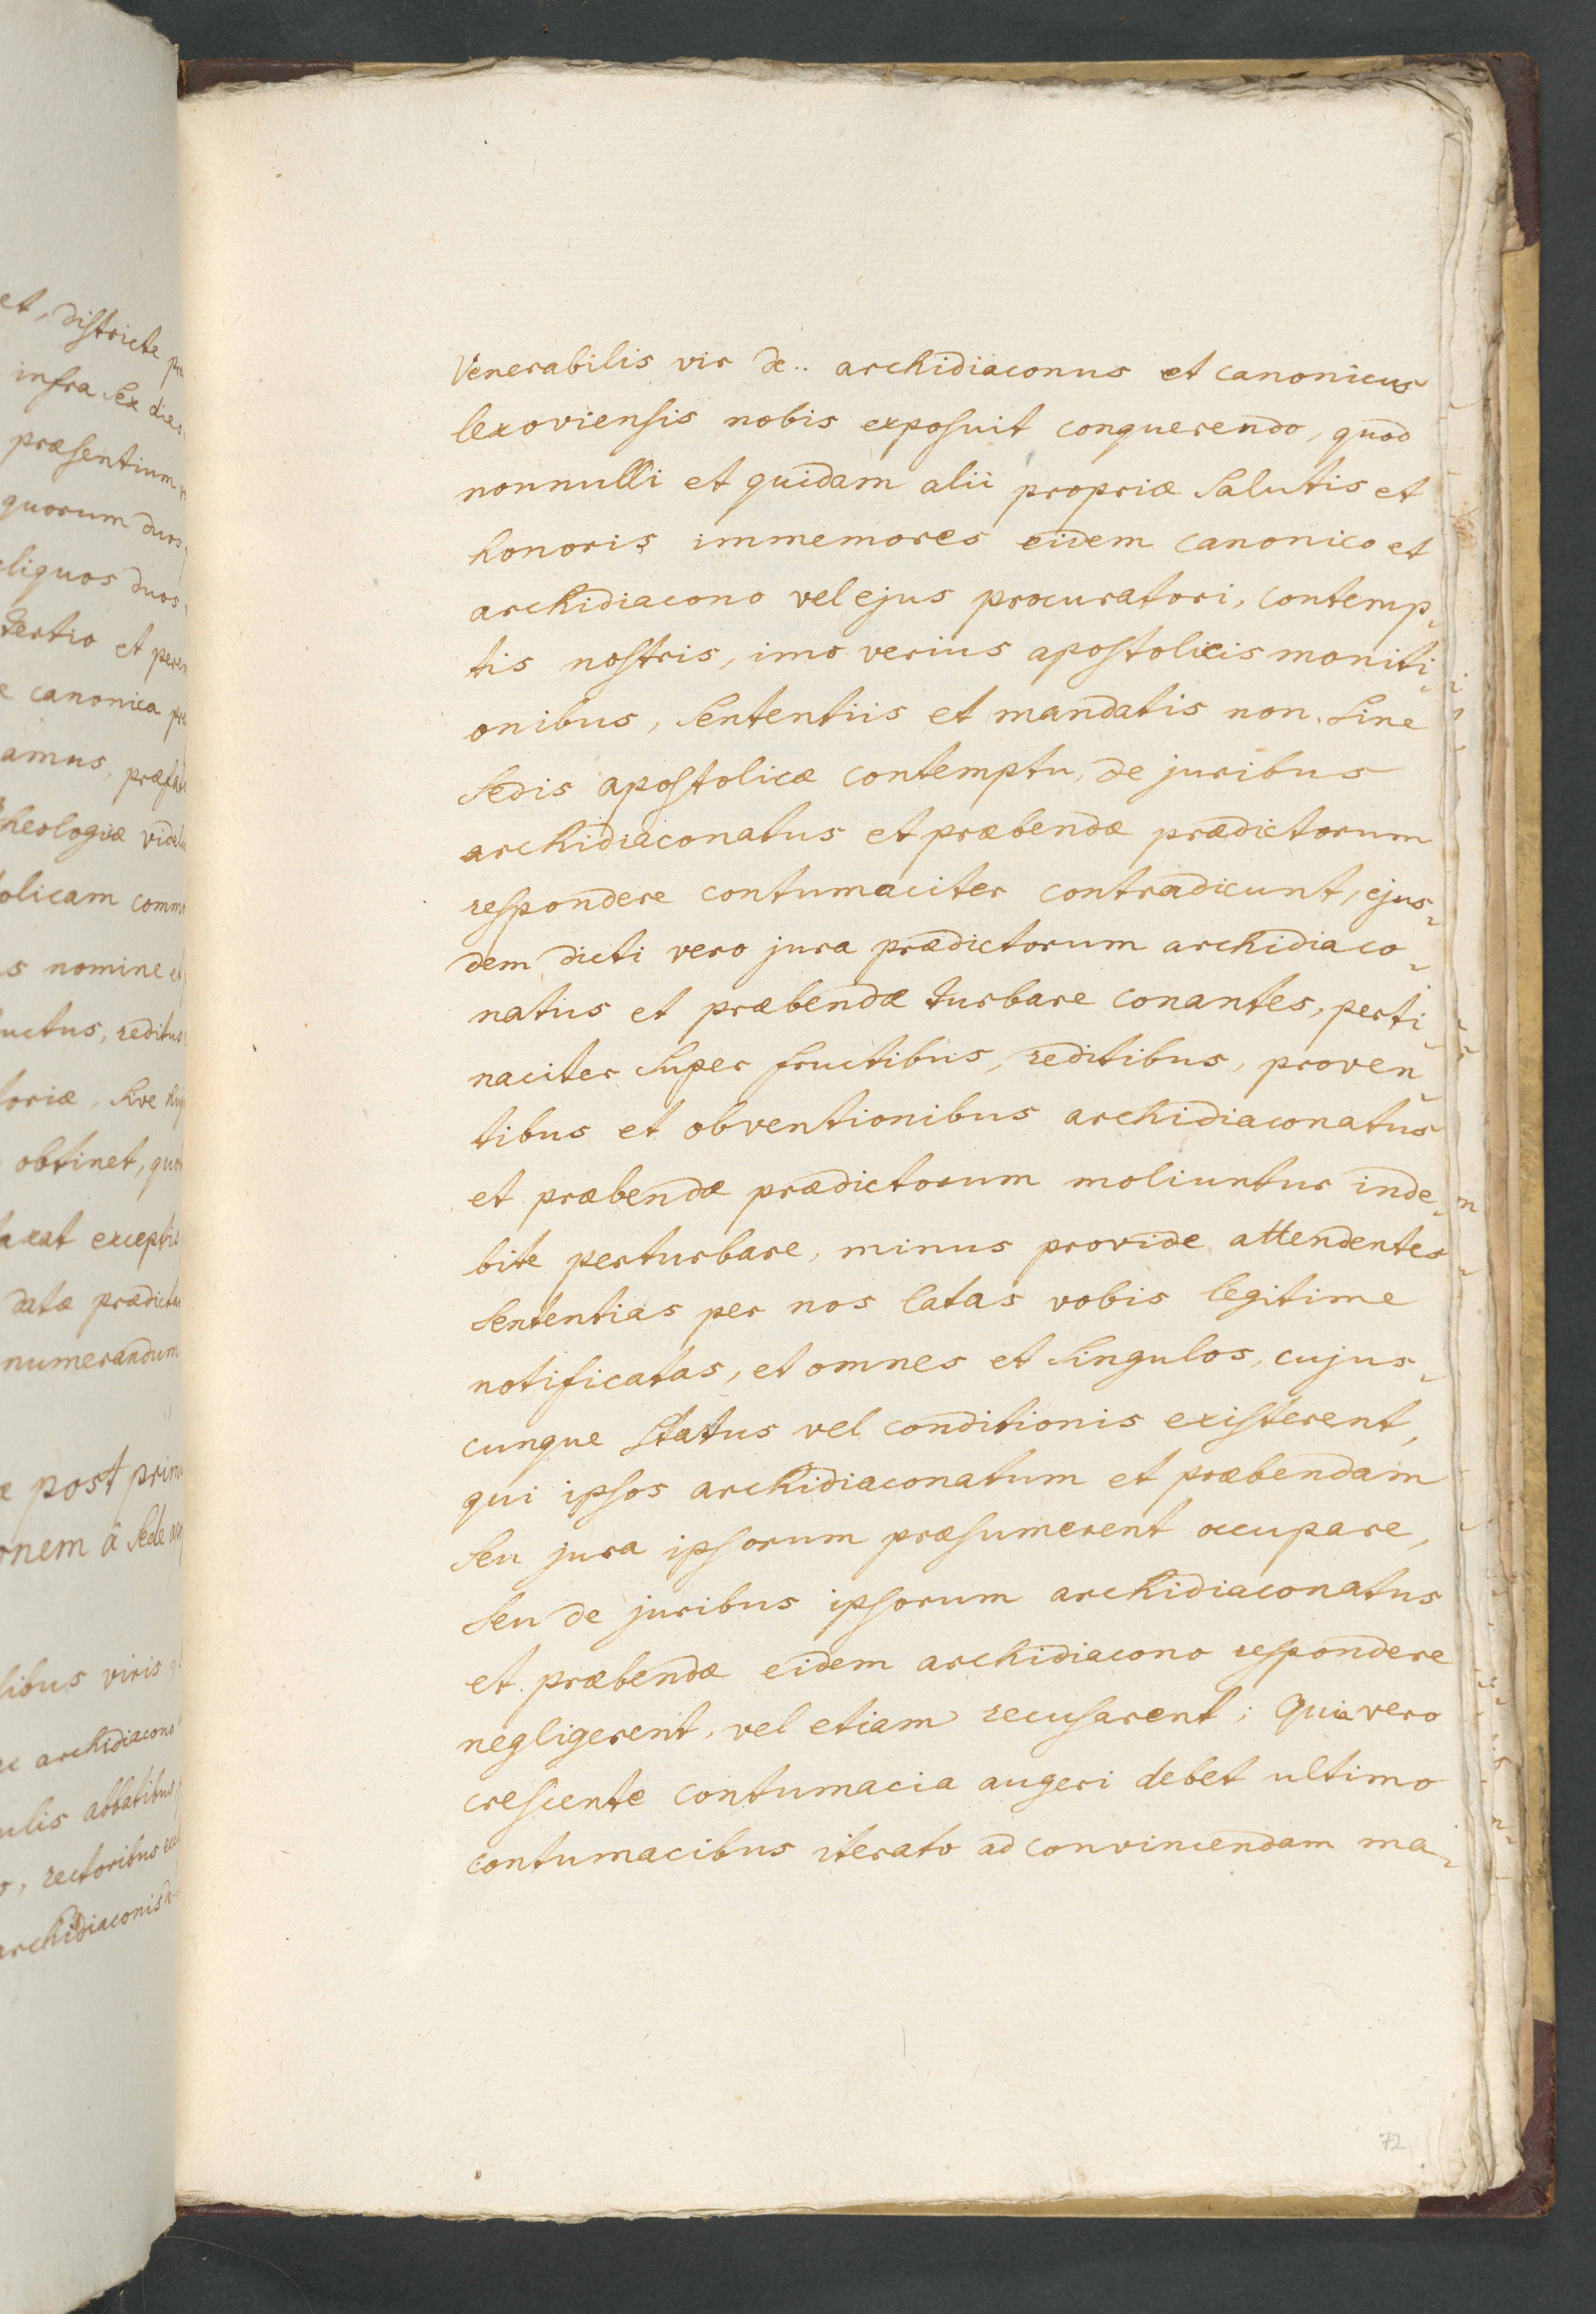 et, districte
infra sex dies
præsentium
quorum duos
duos
tertio et
canonica
amus,

olicam
nomine
reditus
sive
obtinet,
exceptis
datæ
numerandum
post
â sede
viris
archidiacono
abbatibus
rectoribus
archidiaconis
Venerabilis vir de.. archidiaconus et canonicus
lexoviensis nobis exposuit conquerendo, quod
nonnulli et quidam alii propriæ salutis et
honoris immemores eidem canonico et
archidiacono vel ejus procuratori, contemp-
tis nostris, imo verius apostolicis moniti-
onibus, sententiis et mandatis non sine
sedis apostolicæ contemptu, de juribus
archidiaconatus et præbendæ prædictorum
respondere contumaciter contradicunt, ejus-
dem dicti vero jura prædictorum archidiaco-
natus et præbendæ turbare conantes, perti-
naciter super fructibus, reditibus, proven-
tibus et obventionibus archidiaconatus
et præbendæ prædictorum moliuntur inde-
bite perturbare, minus provide attendentes
sententias per nos latas vobis legitime
notificatas, et omnes et singulos, cujus-
cunque status vel conditionis existerent,
qui ipsos archidiaconatum et præbendam
seu jura ipsorum præsumerent occupare,
seu de juribus ipsorum archidiaconatus
et præbendæ eidem archidiacono respondere
negligerent, vel etiam recusarent; Quia vero
crescente contumacia augeri debet ultimo
contumacibus iterato ad convincendam ma-
72